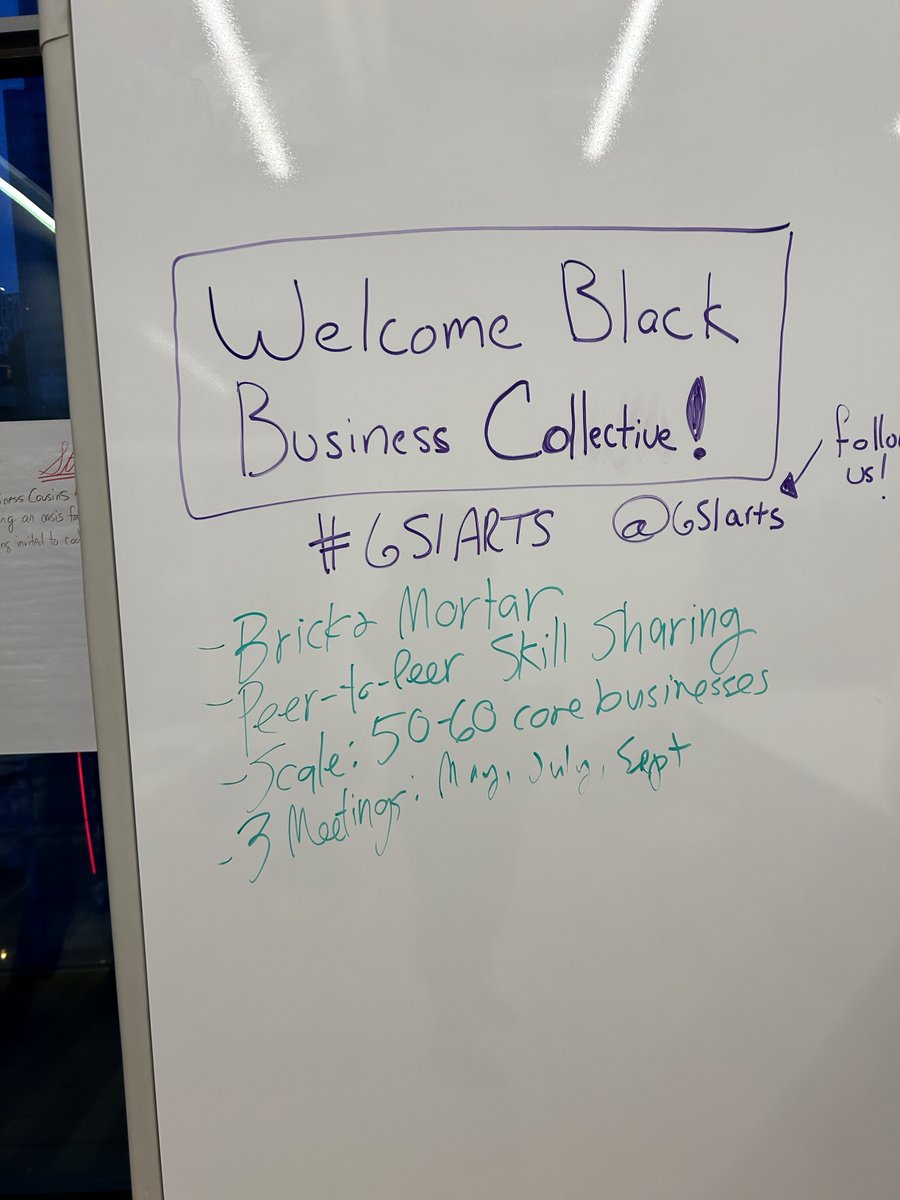 Welcome Black
Business Collective!
#651ARTS @651arts
follo
us!
- Brick & Mortar
- Peer-to-Peer Skill Sharing
- Scale: 50-60 core businesses
- 3 Meetings: May, July, Sept
St
iness Cousins
ng an oasis fo
ng invited to coo